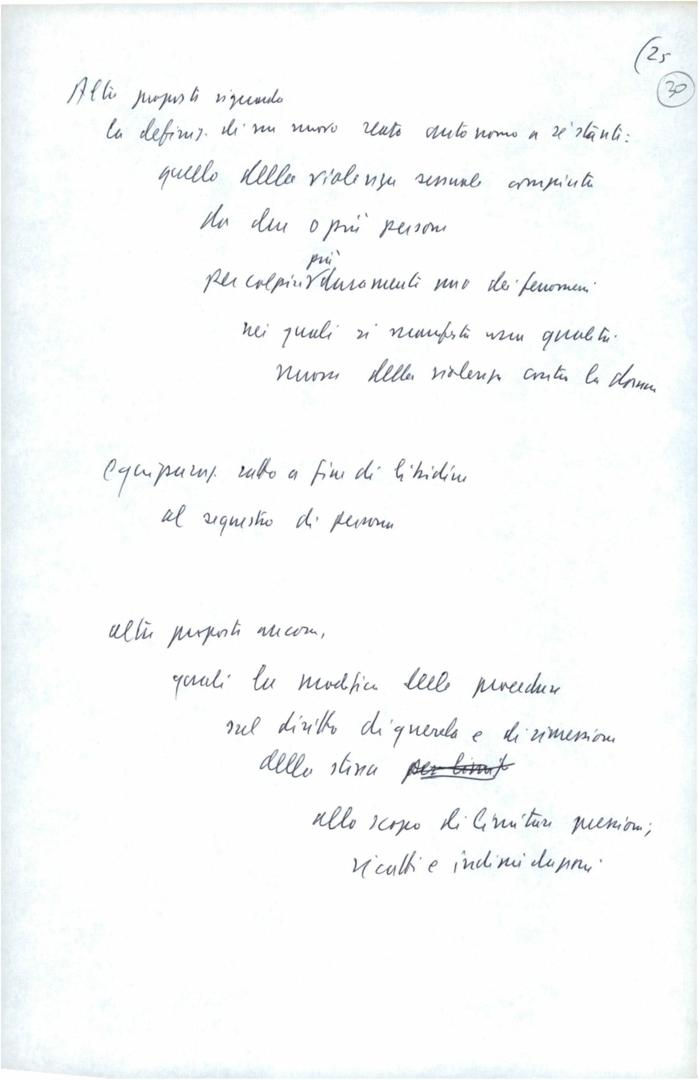 (25
30
Altre proposte riguardo
la definiz. di un nuovo reato autonomo a sé stante:
quello della violenza sessuale compiuta
da due o più persone
più
per colpire duramente uno dei fenomeni
nei quali si manifesta una qualità
nuova della violenza contro la donna
Equiparaz. ratto a fine di libidine
al sequestro di persona
altre proposte ancora,
quali la modifica delle procedure
sul diritto di querela e di rimessione
della stessa per limit
allo scopo di limitare pressioni,
ricatti e intimidazioni